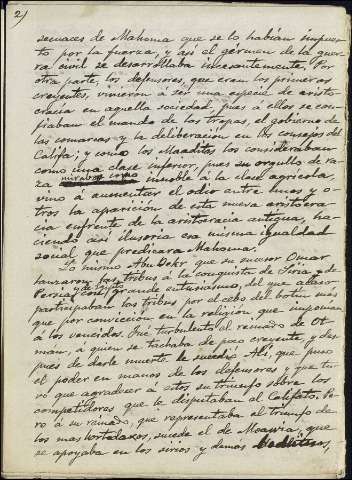 2)
secuaces de Mahoma que se lo habían impues-
to por la fuerza, y así el gérmen de la gue-
rra civil se desarrollaba incesantemente. Por
otra parte, los defensores, que eran los primeros
creyentes, vinieron á ser una especie de aristo-
cracia en aquella sociedad, pues á ellos se con-
fiaban el mando de las tropas, el gobierno de
las comarcas y la deliberación en los consejos del
Califa; y como los Maaditas los consideraban
como una clase inferior, pues su orgullo de ra-
za miraba como innoble á la clase agrícola,
vino á aumentar el odio entre unos y o-
tros la aparición de esta nueva aristocra-
cia enfrente de la aristocracia antigua, ha-
ciendo así ilusoria esa misma igualdad
social que predicara Mahoma.
Lo mismo Abu Bekr que su sucesor Omar
lanzaron las tribus á la conquista de Siria y de
Persia y de Egipto con grande entusiasmo, del que acaso
participaban las tribus por el cebo del botín más
que por convicción en la religión que imponían
á los vencidos. Fué turbulento el reinado de Ot-
man, á quien se tachaba de poco creyente, y des-
pues de darle muerte le sucedió Ali, que puso
el poder en manos de los defensores y que tu-
vo que agradecer á estos su triunfo sobre los
competidores que le disputaban el Califato. Pe-
ro á su reinado, que representaba el triunfo de
los mas hortelanos, sucede el de Moawia, que
se apoyaba en los sirios y demás